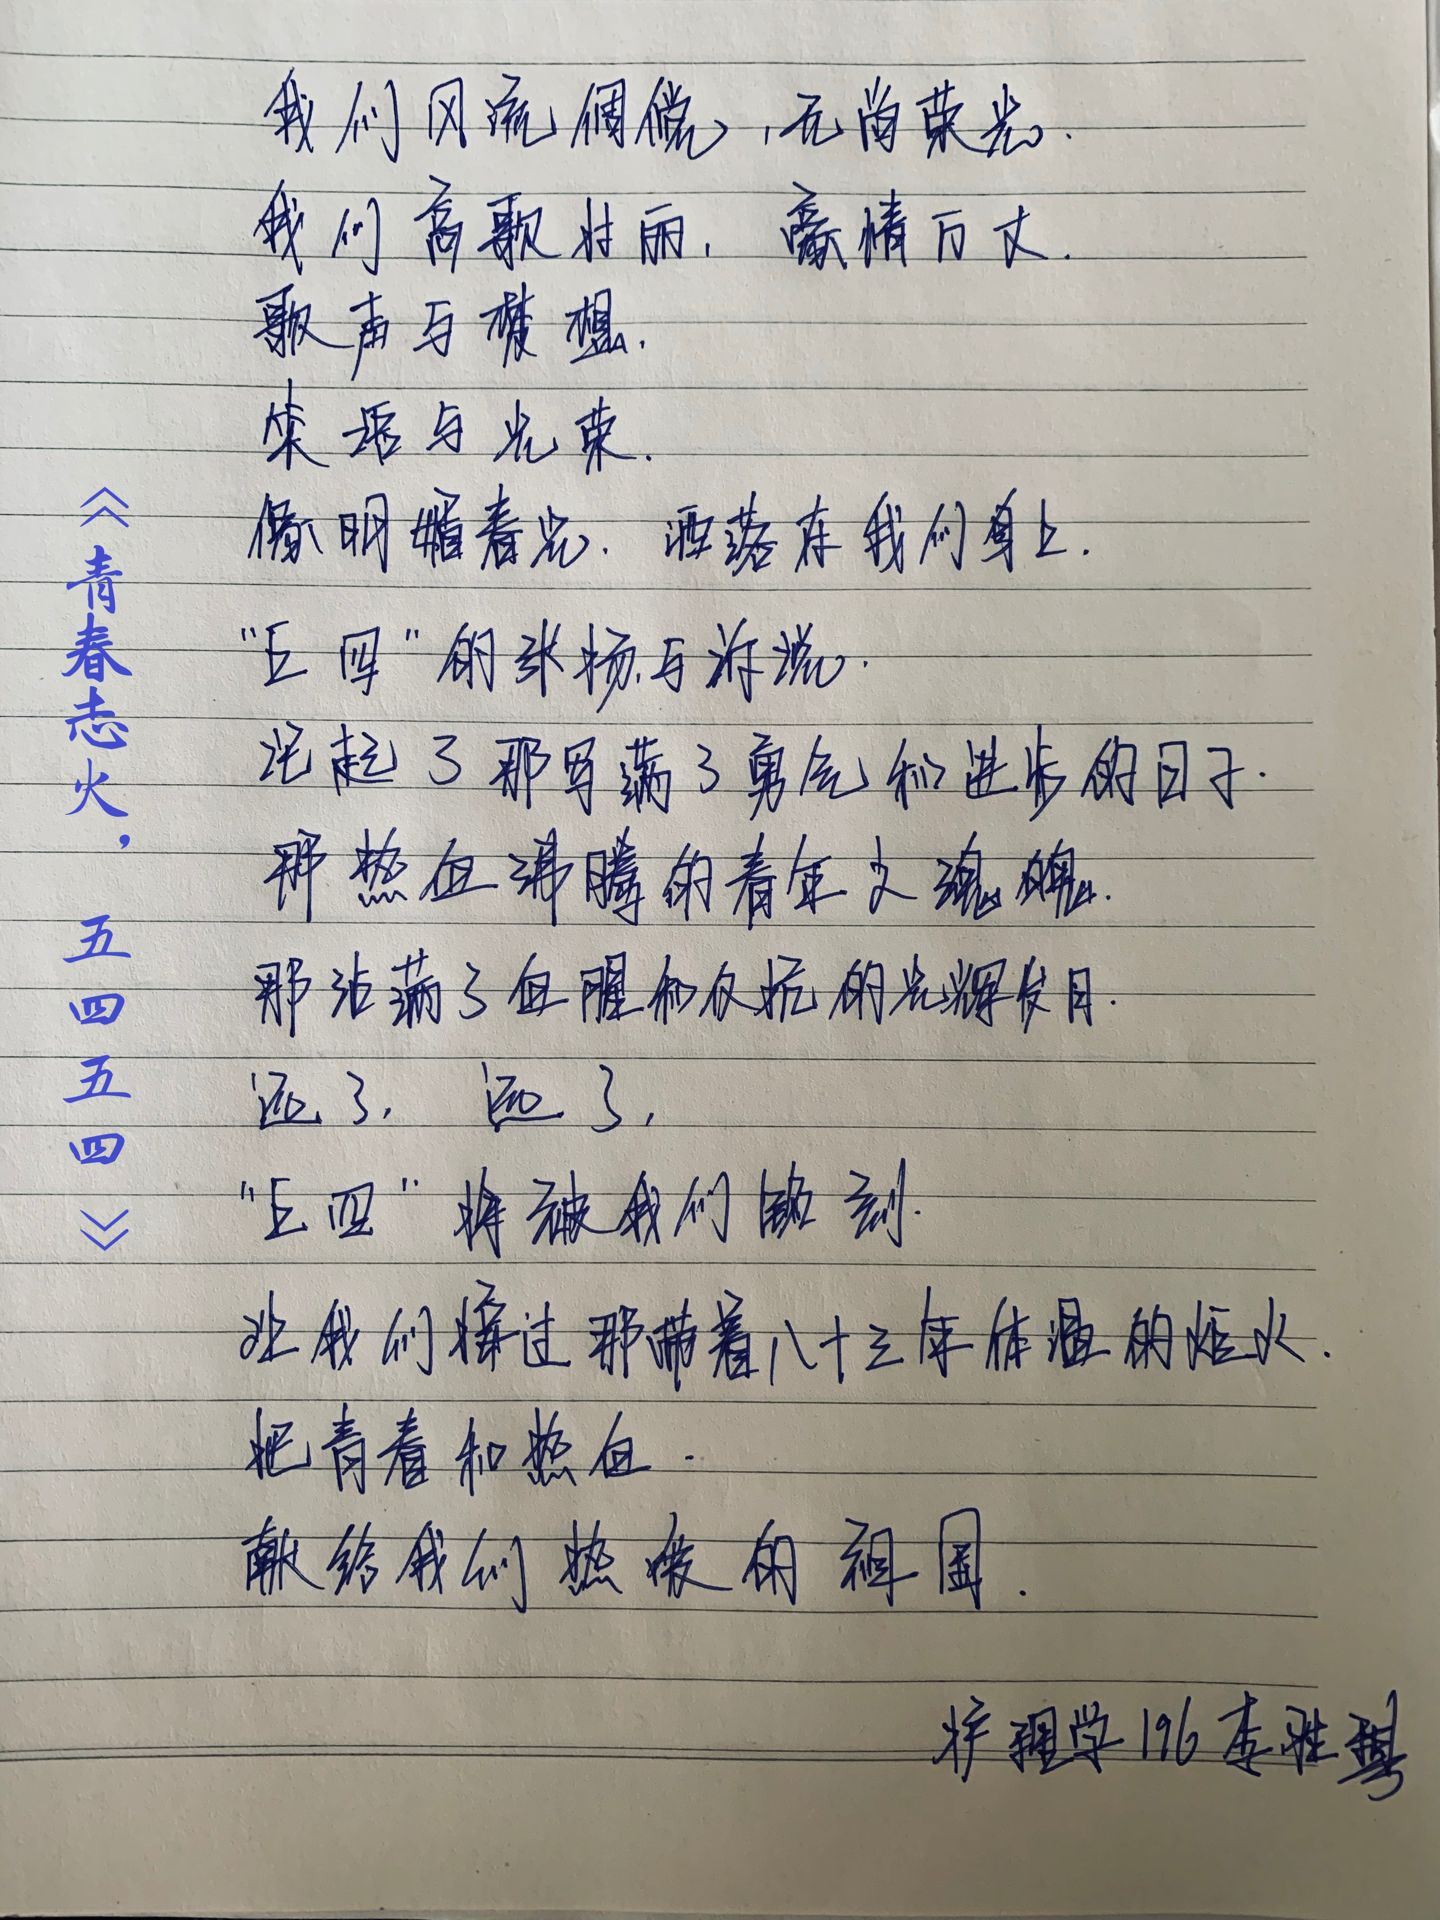 《青春志火，五四五四》
我们风流倜傥，无尚荣光.
我们高歌壮丽，豪情万丈.
歌声与梦想.
荣誉与光荣.
像明媚春光.洒落在我们身上.
"五四"的张扬与游说.
记起了那写满了勇气和进步的日子.
那热血沸腾的青年之魂魄.
那沾满了血腥和反抗的光辉岁月.
远了，远了，
"五四"将被我们铭刻.
让我们接过那带着八十三年体温的炬火.
把青春和热血.
献给我们热爱的祖国.
护理学196李胜